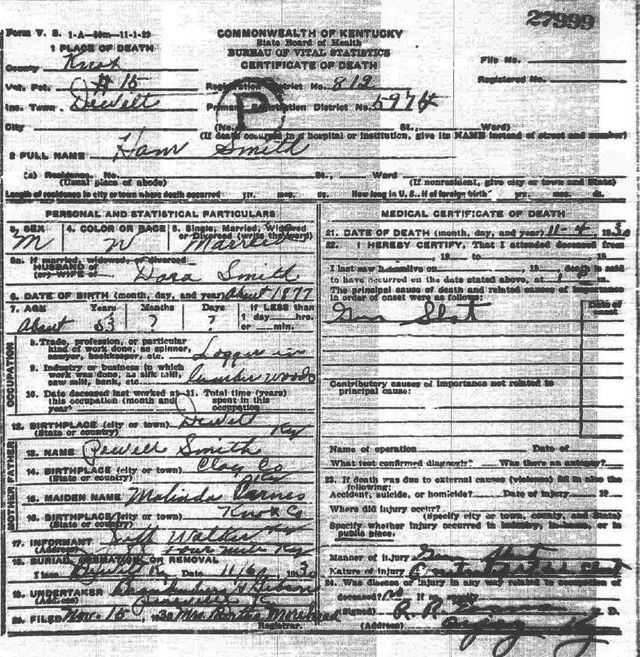 27999
Form V. S. 1-A—50m—11-1-29
COMMONWEALTH OF KENTUCKY
State Board of Health
BUREAU OF VITAL STATISTICS
CERTIFICATE OF DEATH
1 PLACE OF DEATH
County Knox
File No.
Vot. Pct. #15 Registration District No. 812
Registered No.
Inc. Town Dewitt Primary Registration District No.
P
City (No. St., Ward)
(If death occurred in a hospital or institution, give its NAME instead of street and number)
2 FULL NAME Ham Smith
(a) Residence. No. St., Ward
(Usual place of abode) (If nonresident, give city or town and State)
Length of residence in city or town where death occurred yrs. mos. ds. How long in U. S., if of foreign birth? yrs. mos. ds.
PERSONAL AND STATISTICAL PARTICULARS
3. SEX 4. COLOR OR RACE 5. Single, Married, Widowed or Divorced (write the word)
M W Married
5a. If married, widowed, or divorced
HUSBAND of
(or) WIFE of Dora Smith
6. DATE OF BIRTH (month, day, and year) About 1877
7. AGE Years Months Days If LESS than
About 53 ? ? 1 day hrs.
or min.
OCCUPATION
8. Trade, profession, or particular
kind of work done, as spinner,
sawyer, bookkeeper, etc. Logger in
9. Industry or business in which
work was done, as silk mill,
saw mill, bank, etc. lumber woods
10. Date deceased last worked at 11. Total time (years)
this occupation (month and spent in this
year) occupation
12. BIRTHPLACE (city or town) Dewitt
(State or country) Ky
FATHER
13. NAME Smith
14. BIRTHPLACE (city or town) Clay Co
(State or country) Ky
MOTHER
15. MAIDEN NAME Malinda
16. BIRTHPLACE (city or town) Knox Co
(State or country) Ky
17. INFORMANT Walker
(Address) Four Mile Ky
18. BURIAL, CREMATION OR REMOVAL
Place Date 11/6
19. UNDERTAKER
(Address)
20. FILED Nov. 15 30 Mrs
Registrar.
MEDICAL CERTIFICATE OF DEATH
21. DATE OF DEATH (month, day, and year) 11-4 1930
22. I HEREBY CERTIFY, That I attended deceased from
, 19 to , 19
I last saw h alive on , 19 , death is said
to have occurred on the date stated above, at m.
The principal cause of death and related causes of importance
in order of onset were as follows:
Date of onset
Gun Shot
Contributory causes of importance not related to
principal cause:
Name of operation Date of
What test confirmed diagnosis? Was there an autopsy?
23. If death was due to external causes (violence) fill in also the
following:
Accident, suicide, or homicide? Date of injury 19
Where did injury occur?
(Specify city or town, county, and State)
Specify whether injury occurred in industry, in home, or in
public place.
Manner of injury Gun Shot
Nature of injury
24. Was disease or injury in any way related to occupation of
deceased? no If so, specify
(Signed) R. R. D.
(Address) Ky